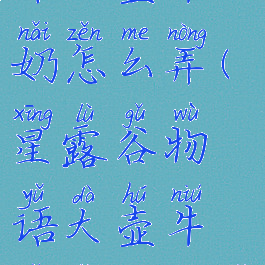 nǎi zěn me nòng
奶怎么弄(
xīng lù gǔ wù
星露谷物
yǔ dà hú niú
语大壶牛